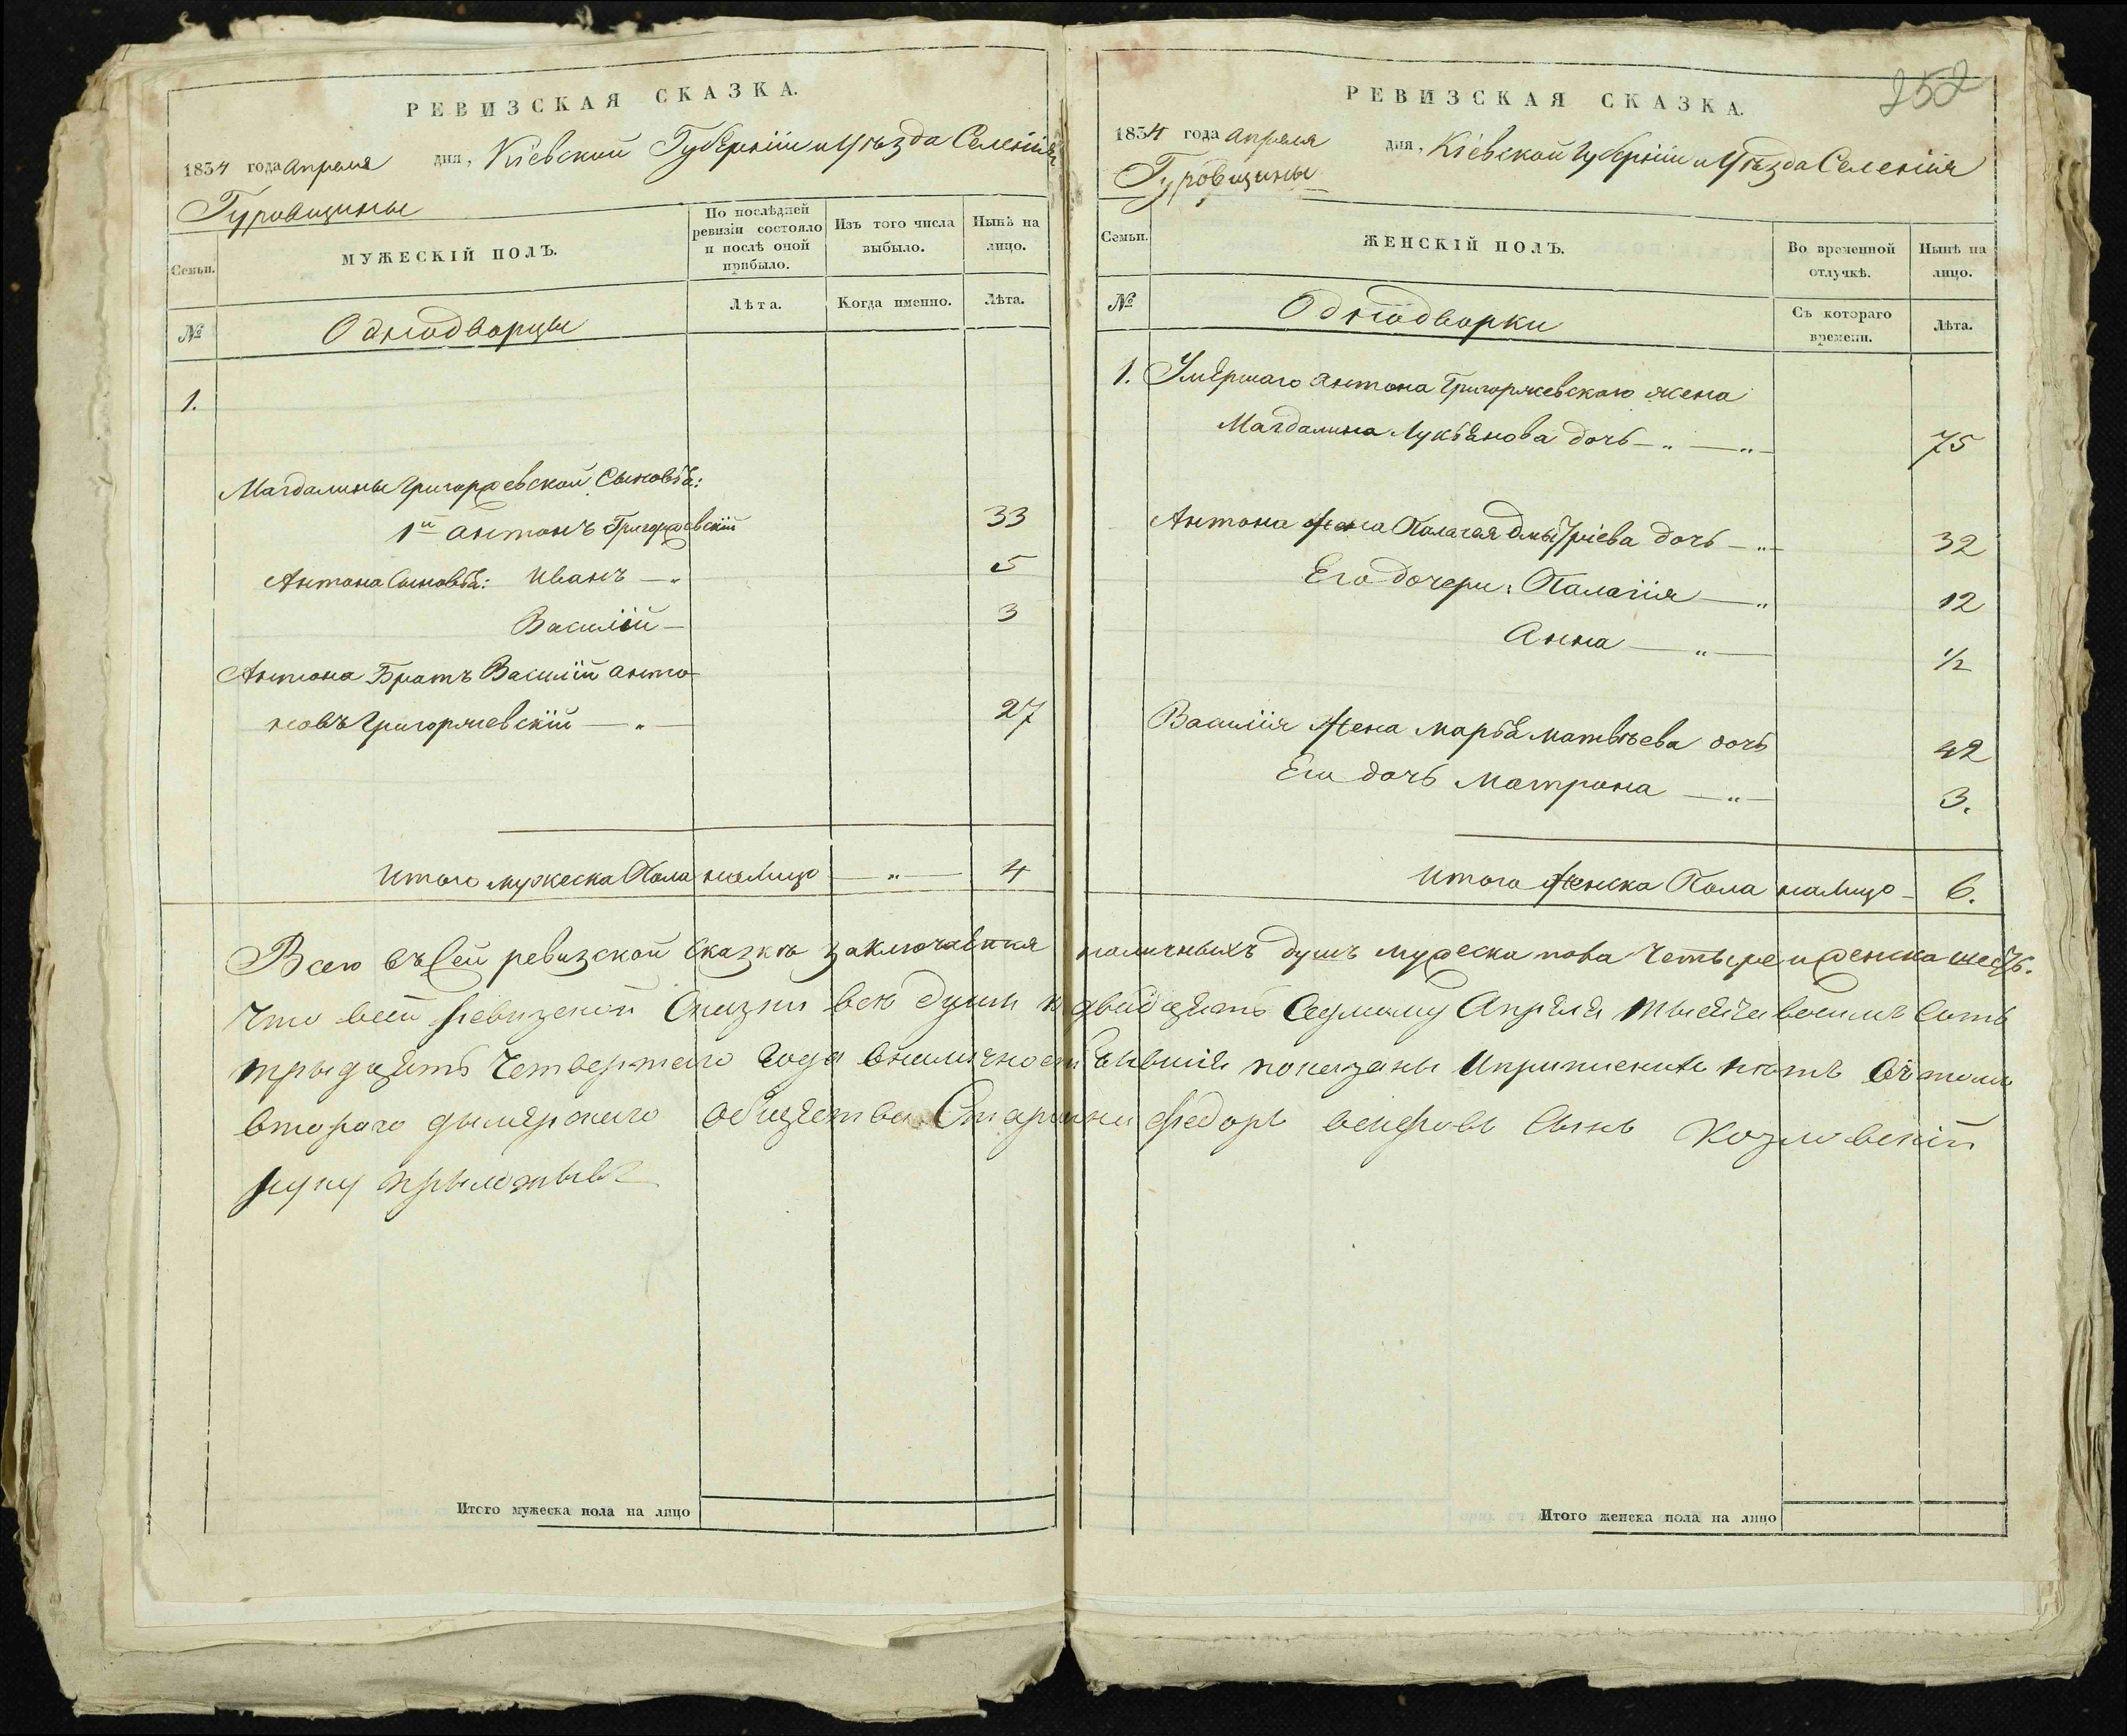 РЕВИЗСКАЯ СКАЗКА.
1834 года Апреля дня, Кіевской Губерніи и Уѣзда Селенія
Гуровщины
Семьи.
МУЖЕСКІЙ ПОЛЪ.
По послѣдней ревизіи состояло и послѣ оной прибыло.
Изъ того числа выбыло.
Нынѣ на лицо.
№
Однодворцы
Лѣта.
Когда именно.
Лѣта.
1.
Магдалины Григоржевской Сыновья:
1й Антонъ Григоржевскій 33
Антона Сыновья: Иванъ — „ 5
Василій — 3
Антона Братъ Василій Анто-
новъ Григоржевскій — „ — 27
Итого мужеска Пола на Лицо — „ — 4
252
РЕВИЗСКАЯ СКАЗКА.
1834 года Апреля дня, Кіевской Губерніи и Уѣзда Селенія
Гуровщины
Семьи.
ЖЕНСКІЙ ПОЛЪ.
Во временной отлучкѣ.
Нынѣ на лицо.
№
Однодворки
Съ котораго времени.
Лѣта.
1. Умершаго Антона Григоржевскаго жена
Магдалина Лукьянова дочь — „ — „ — 75
Антона Жена Палагея Дмытріева дочь — „ — 32
Его дочери: Палагія — „ 12
Анна — „ — 1/2
Василія Жена Марья Матвѣева дочь 42
Его дочь Матрона — „ — 3.
Итого Женска Пола на Лицо — 6.
Всего въ Сей ревизской Сказкѣ заключается наличныхъ душъ мужеска пола Четыре и женска шесть.
Что в сей Ревизской Сказки все души к двадцять Седмому Апреля тысяча восимъ Сотъ
трыдцять Четвертаго Года вналичности бывшия показаны И в томъ
втораго дымерскаго общества Старшина Федоръ Сынъ Козловскій
руку прыложывъ
Итого мужеска пола на лицо
Итого женска пола на лицо